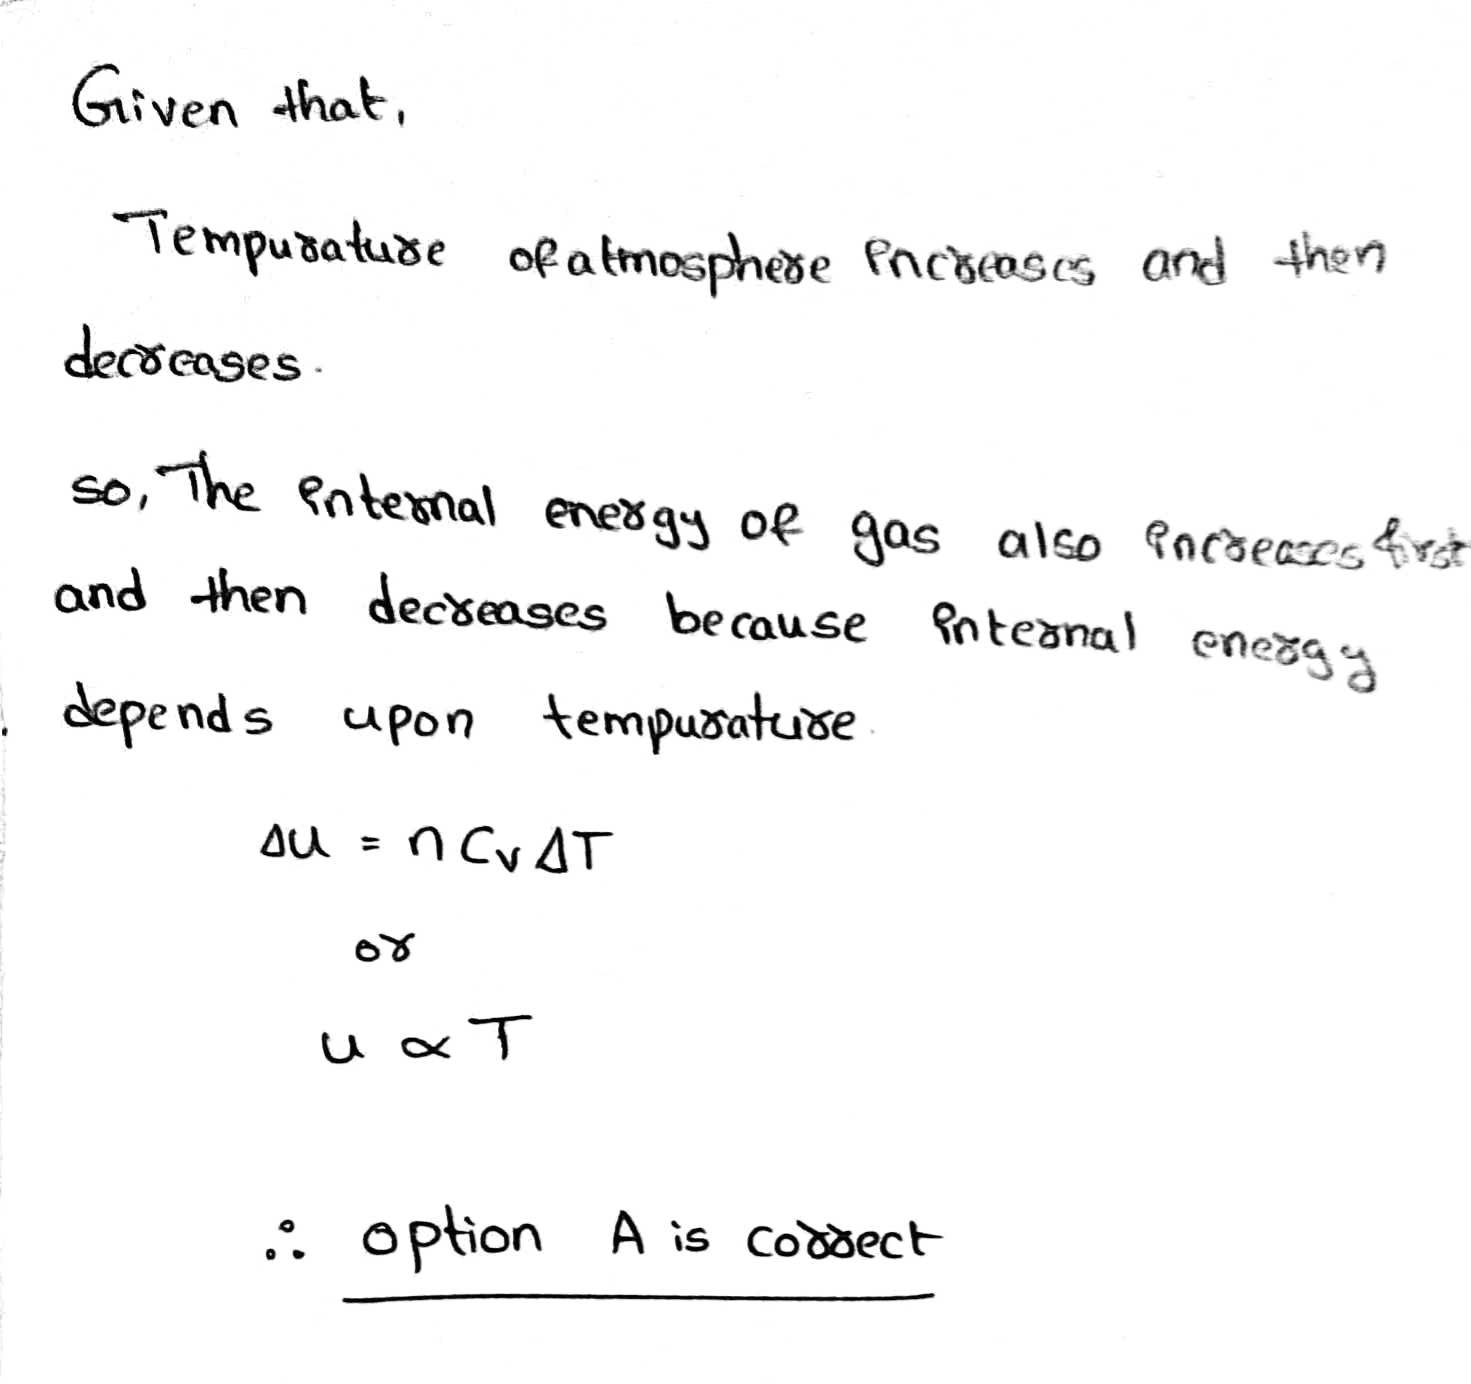 Given that,
Tempurature of atmosphere increases and then
decreases.
so, The internal energy of gas also increases first
and then decreases because internal energy
depends upon tempurature.
ΔU = n Cv ΔT
or
U ∝ T
∴ option A is correct